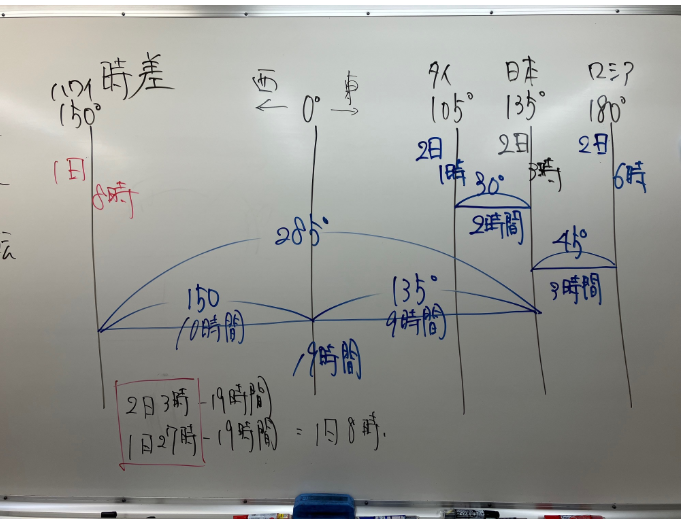 時差
ハワイ
150°
西 ← 0° 東 →
タイ
105°
日本
135°
ロシア
180°
1日
8時
2日
1時
2日
3時
2日
6時
30°
2時間
45°
3時間
285°
150
10時間
135°
9時間
19時間
2日3時-19時間
1日27時-19時間 = 1日8時.